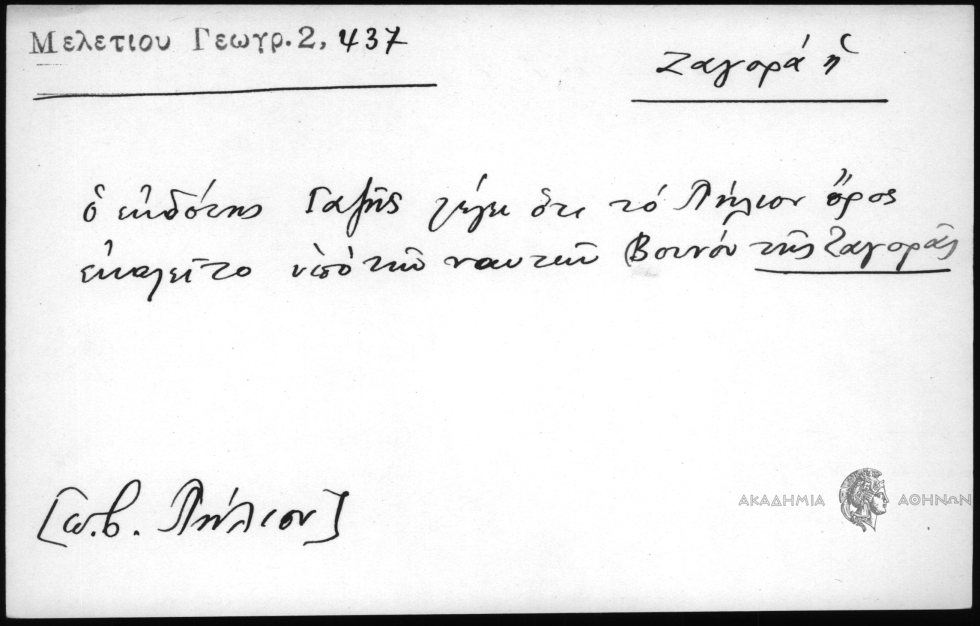 Μελετιου Γεωγρ. 2, 437
Ζαγορά ἡ
ὁ ἐκδότης Γαζῆς λέγει ὅτι τό Πήλιον ὄρος
ἐκαλεῖτο ὑπό τῶν ναυτῶν Βουνόν τῆς Ζαγορᾶς
[ω.β. Πήλιον]
ΑΚΑΔΗΜΙΑ ΑΘΗΝΩΝ